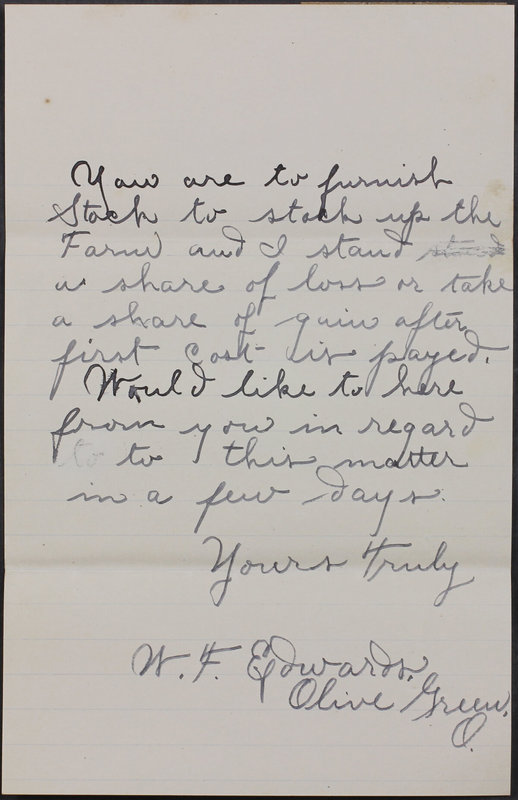 You are to furnish
Stock to stock up the
Farm and I stand
a share of loss or take
a share of gain after
first cost is payed.
Would like to here
from you in regard
to to this matter
in a few days.
Yours Truly
W. F. Edwards.
Olive Green.
O.